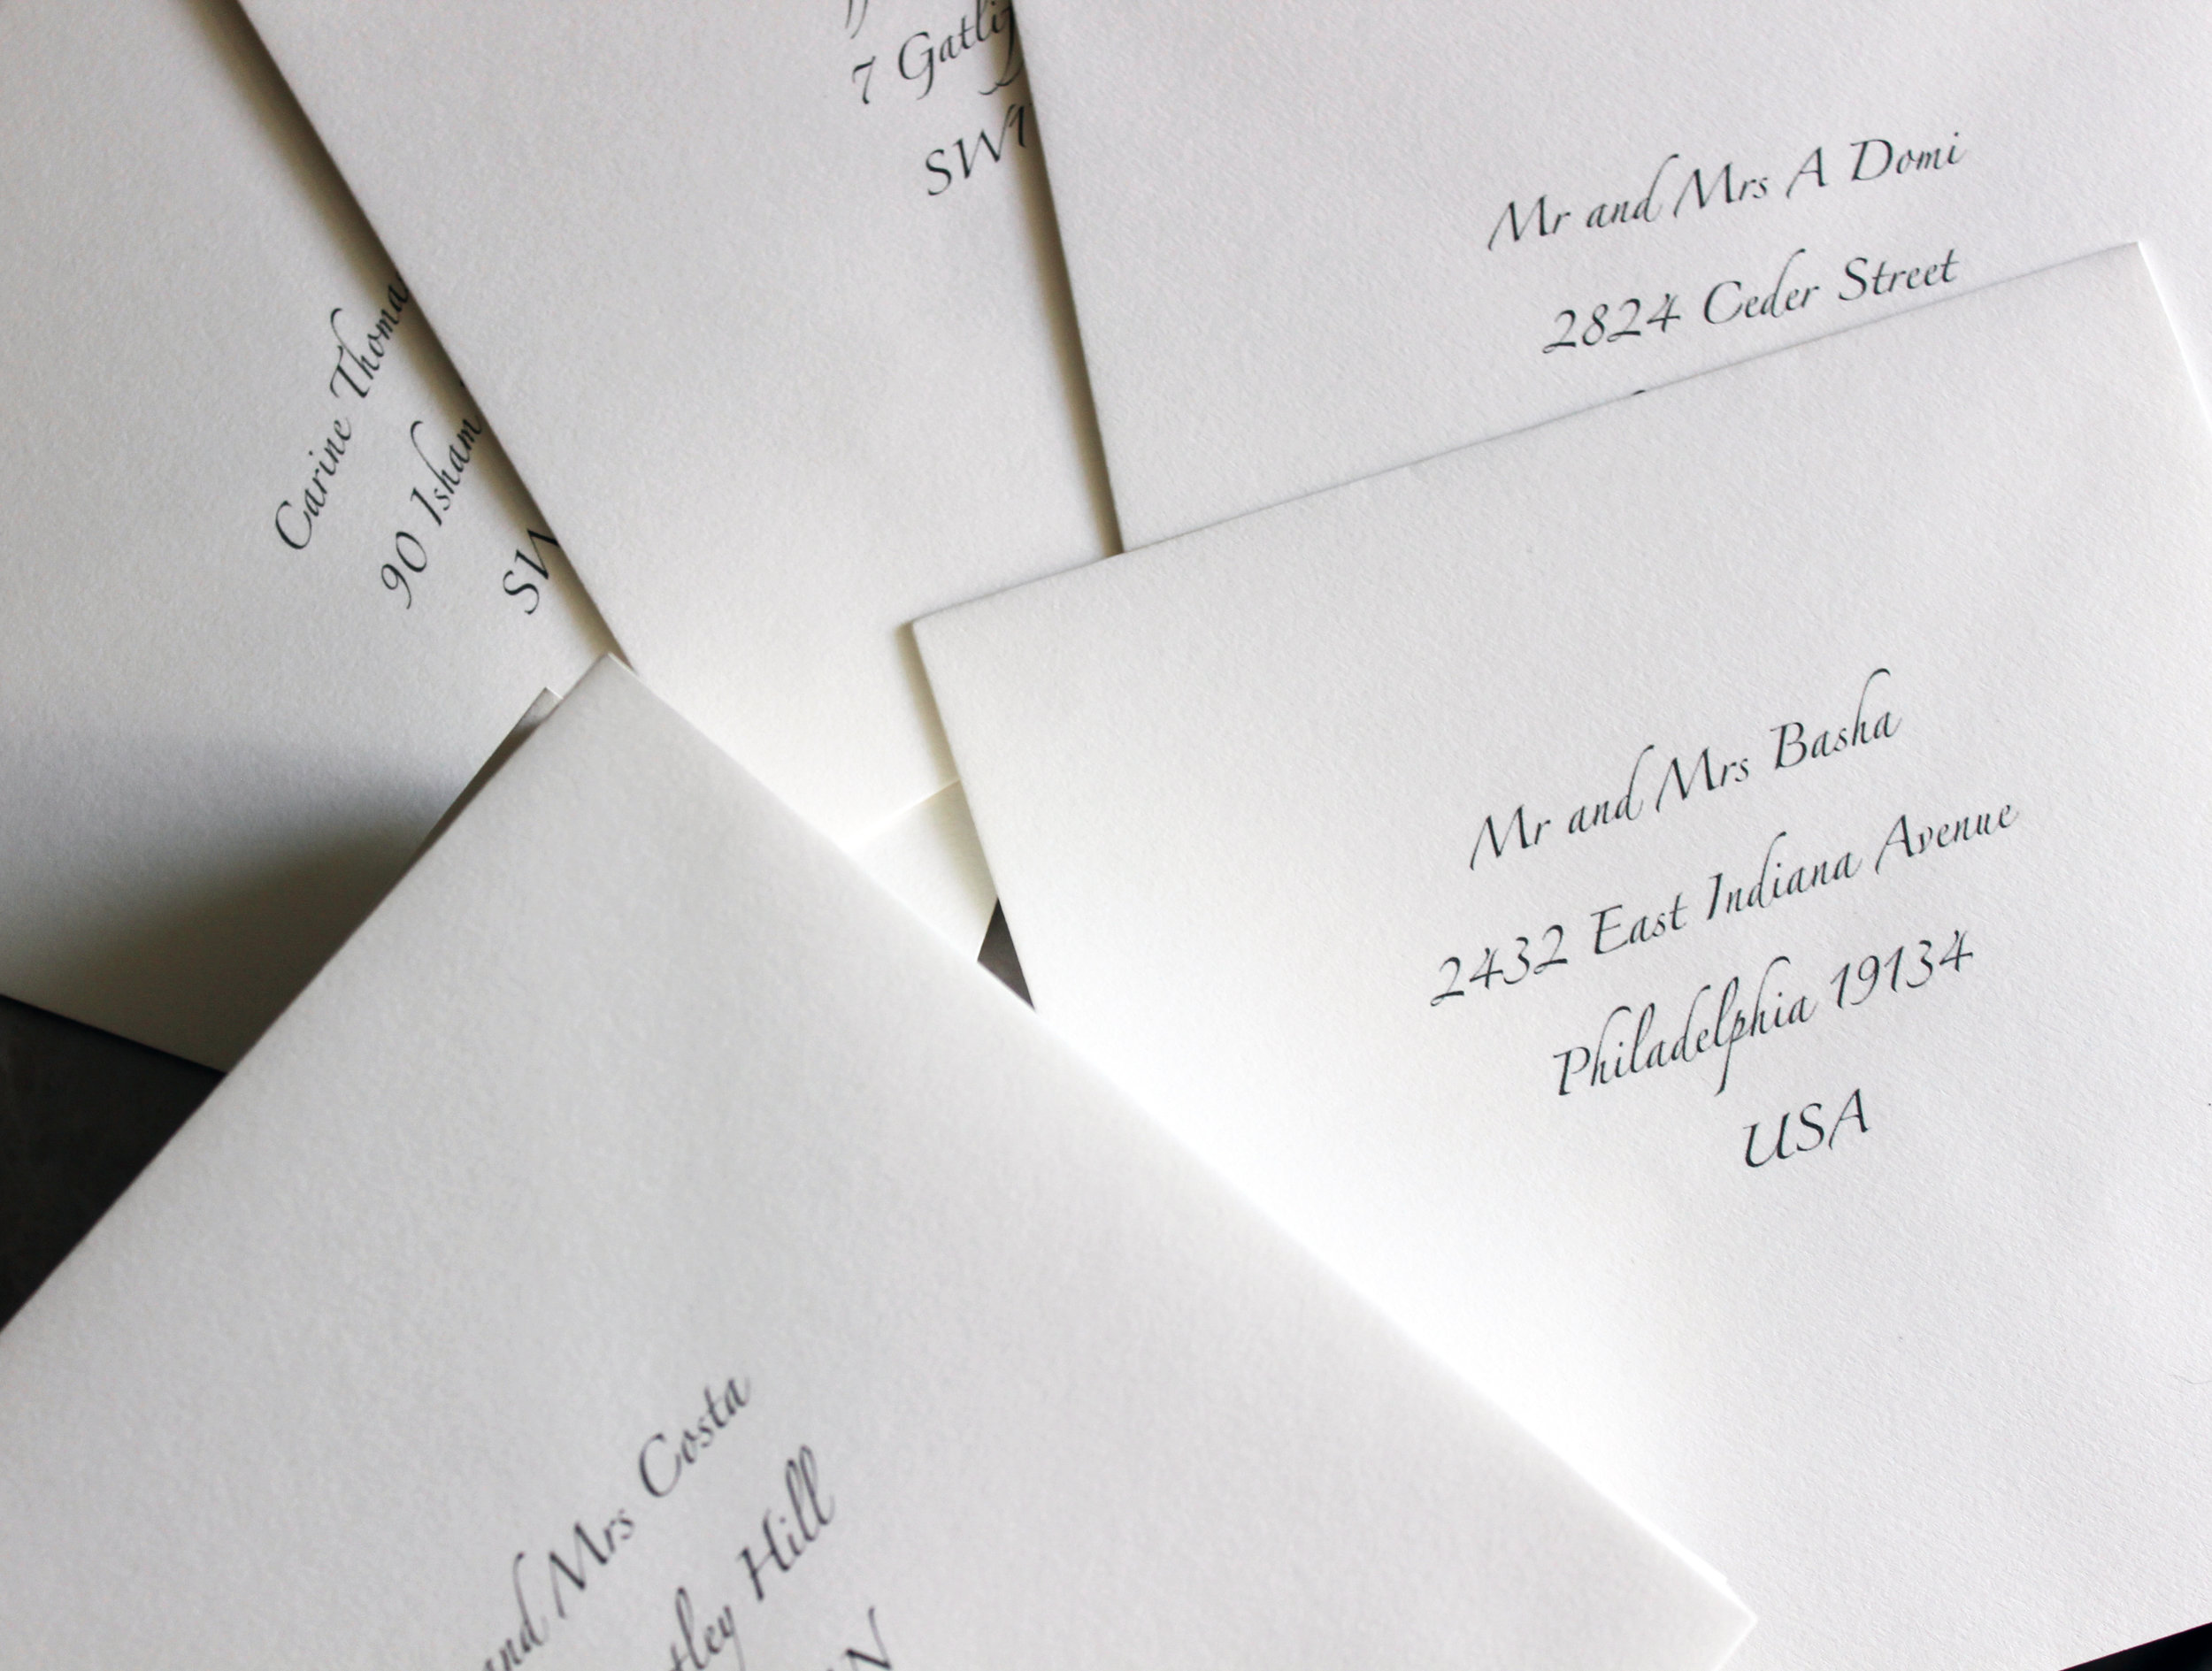 7 Gatli
SW1
Mr and Mrs A Domi
2824 Ceder Street
Carine Thoma
90 Isham
SW
Mr and Mrs Basha
2432 East Indiana Avenue
Philadelphia 19134
USA
and Mrs Costa
tley Hill
N